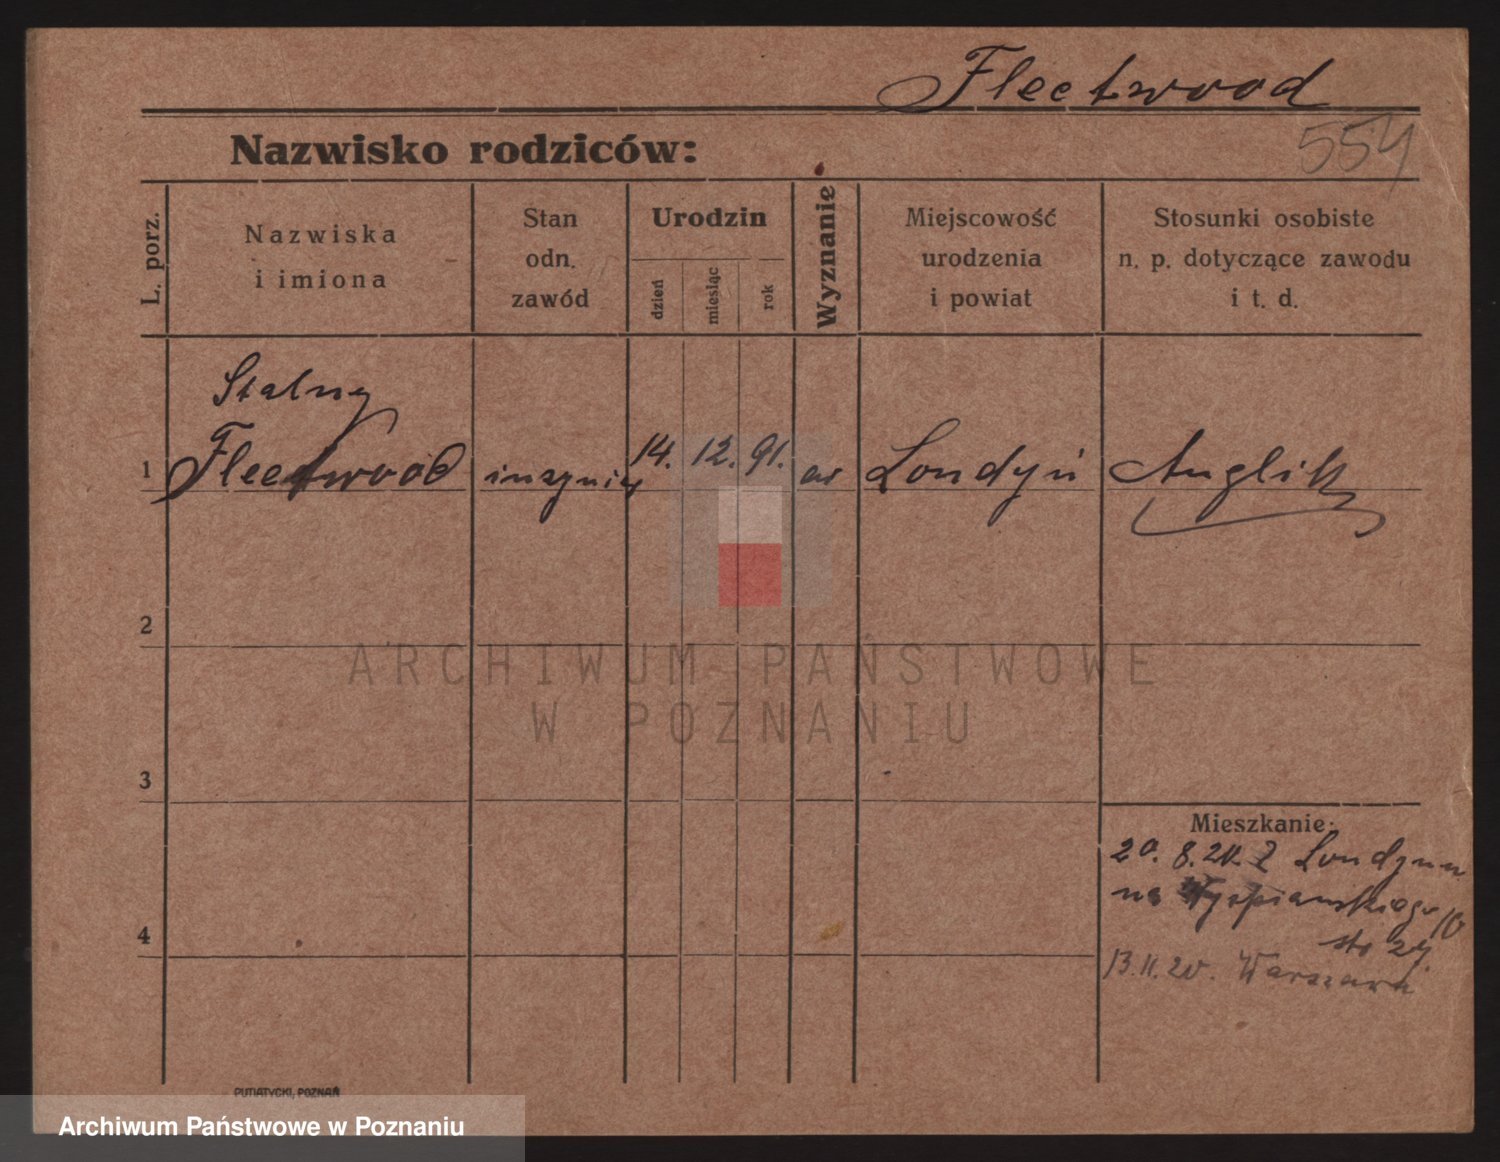 Fleetwood
554
Nazwisko rodziców:
L. porz.
Nazwiska
i imiona
Stan
odn.
zawód
Urodzin
dzień
miesiąc
rok
Wyznanie
Miejscowość
urodzenia
i powiat
Stosunki osobiste
n. p. dotyczące zawodu
i t. d.
Stalny
1 Fleetwood inzynier 14. 12. 91. Londyn Anglik
2
ARCHIWUM PAŃSTWOWE
W POZNANIU
3
Mieszkanie:
20. 8. 20. Z Londynu
na Wyspiańskiego 10
4
13.11.20. Warszawa
PUTIATYCKI, POZNAŃ
Archiwum Państwowe w Poznaniu